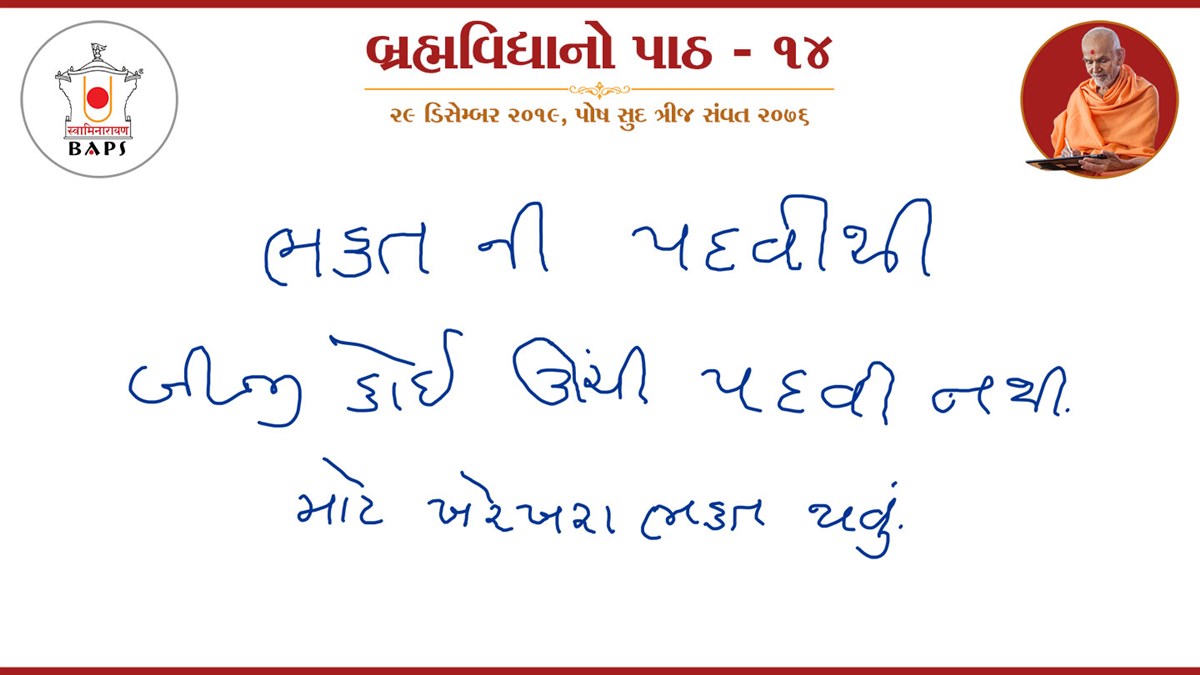 બ્રહ્મવિદ્યાનો પાઠ - ૧૪
૨૯ ડિસેમ્બર ૨૦૧૯, પોષ સુદ ત્રીજ સંવત ૨૦૭૬
स्वामिनारायण
BAPS
ભક્ત ની પદવીથી
બીજી કોઈ ઊંચી પદવી નથી.
માટે ખરેખરા ભક્ત થવું.